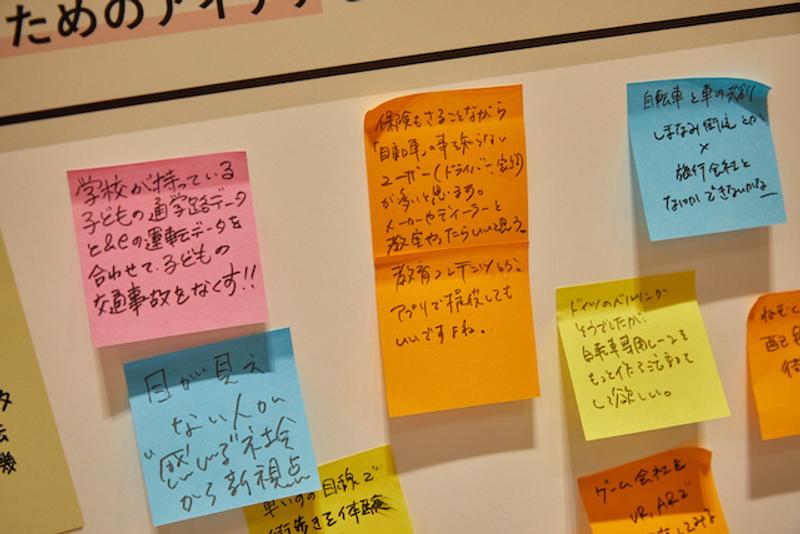 ためのアイデア
学校が持っている
子どもの通学路データ
と&eの運転データを
合わせて、子どもの
交通事故をなくす!!
目が見え
ない人が
"感じる"社会
から新視点
車いすの目線で
街歩きを体験
保険もさることながら
「自動車」の事を知らない
ユーザー(ドライバー、家族)
が多いと思います。
メーカーやディーラーと
教室やったらいいと思う。
教育コンテンツから。
アプリで提供しても
いいですよね。
自転車と車の共創
しまなみ街道とか
×
旅行会社と
なにかできないかな
ドイツのベルリンが
そうでしたが、
自転車専用レーンを
もっと作る活動を
して欲しい。
ゲーム会社と
VR,ARで